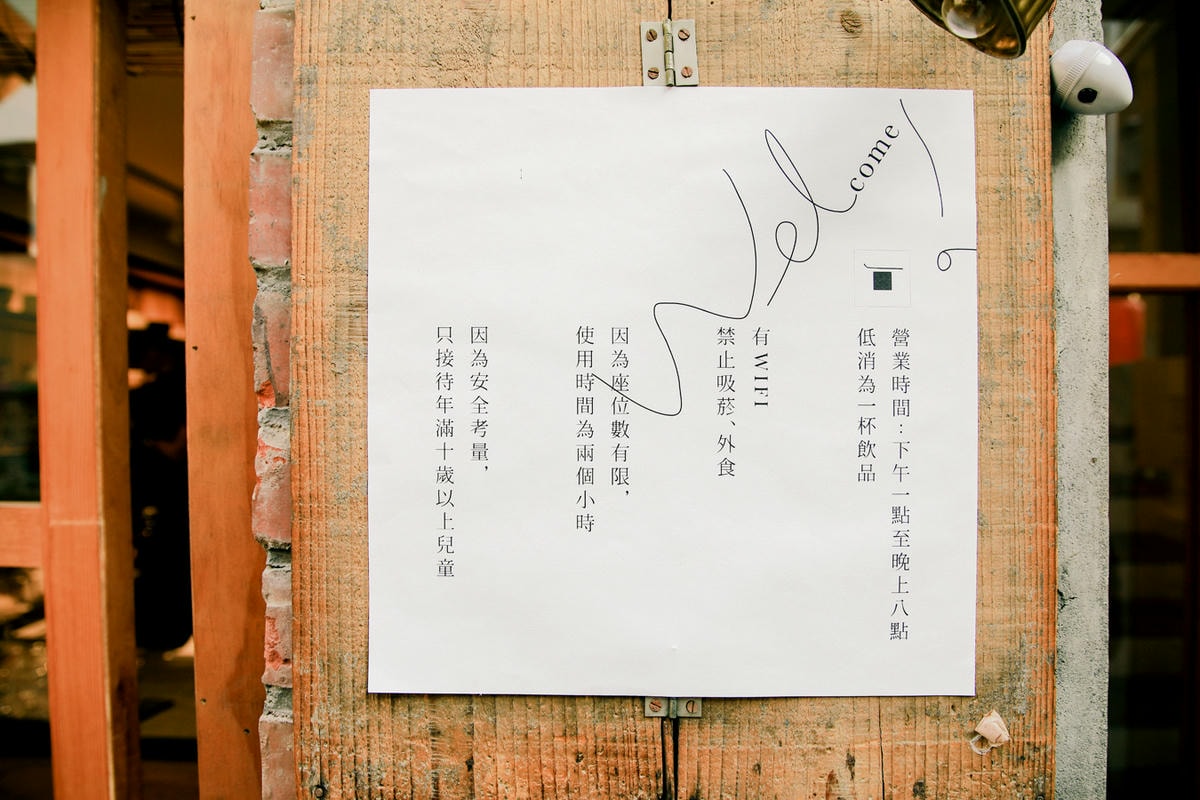 Welcome
營業時間：下午一點至晚上八點
低消為一杯飲品
有WIFI
禁止吸菸、外食
因為座位數有限，
使用時間為兩個小時
因為安全考量，
只接待年滿十歲以上兒童